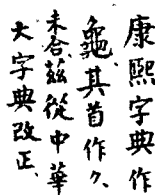 康熙字典作
龜、其首作⺈、
未合、茲從中華
大字典改正、